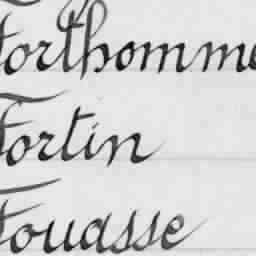 Forthomme
Fortin
Fouasse